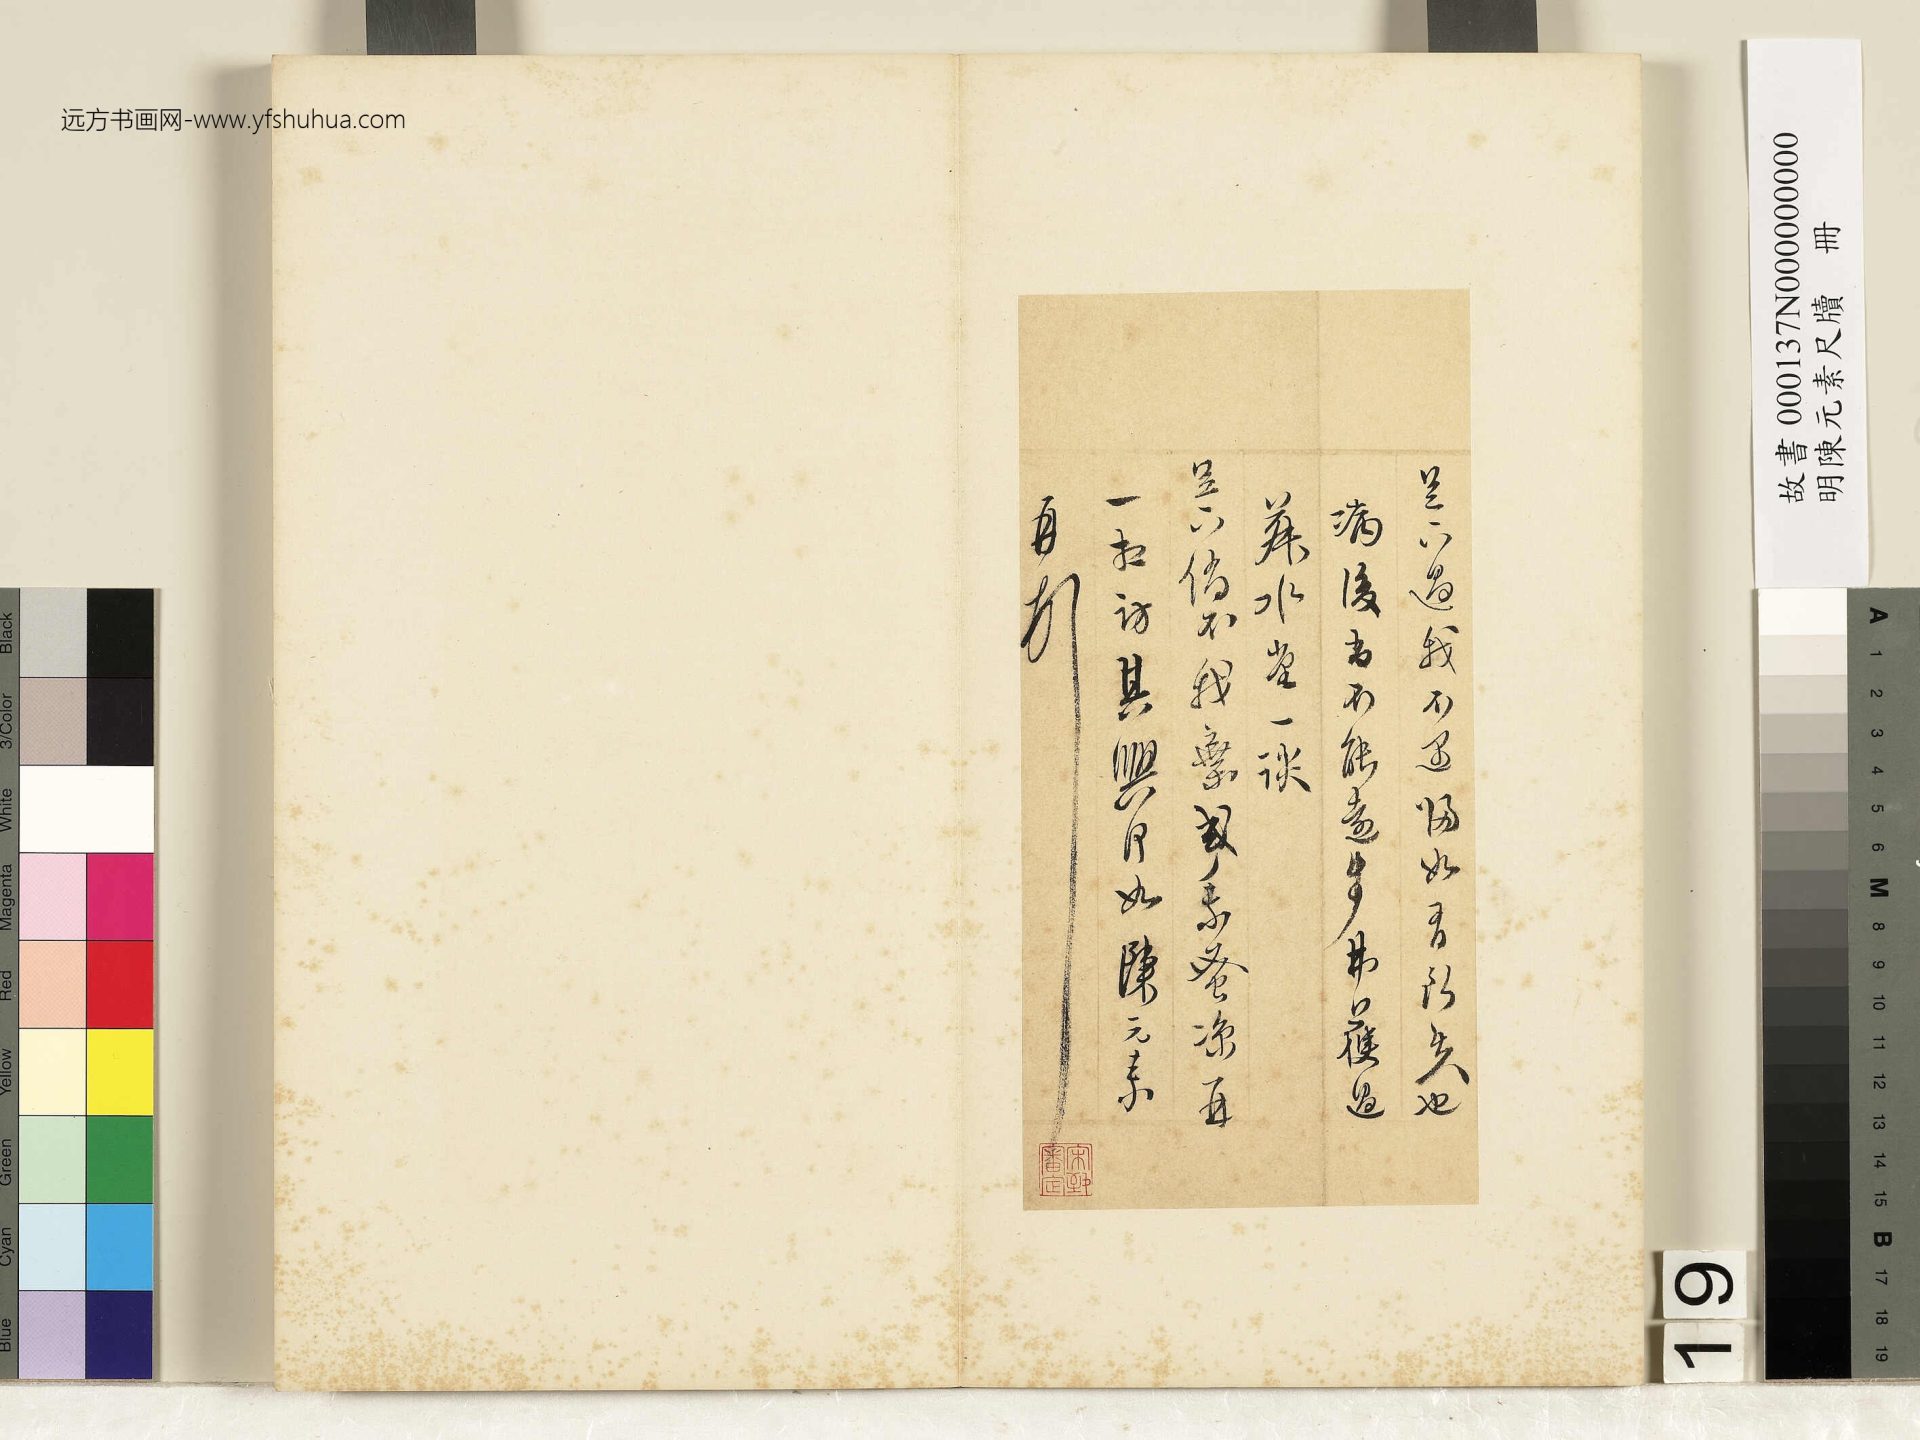 远方书画网-www.yfshuhua.com
足下過我不遇歸如有所失也
病後尚不能遠步弗獲過
水堂一談
足下倘不我棄乎素蚤涼再
一相訪其興何如陳元素
再頓
宋犖審定
故書000137N000000000
明陳元素尺牘 冊
19
Black
3/Color
White
Magenta
Red
Yellow
Green
Cyan
Blue
A
1
2
3
4
5
6
M
8
9
10
11
12
13
14
15
B
17
18
19